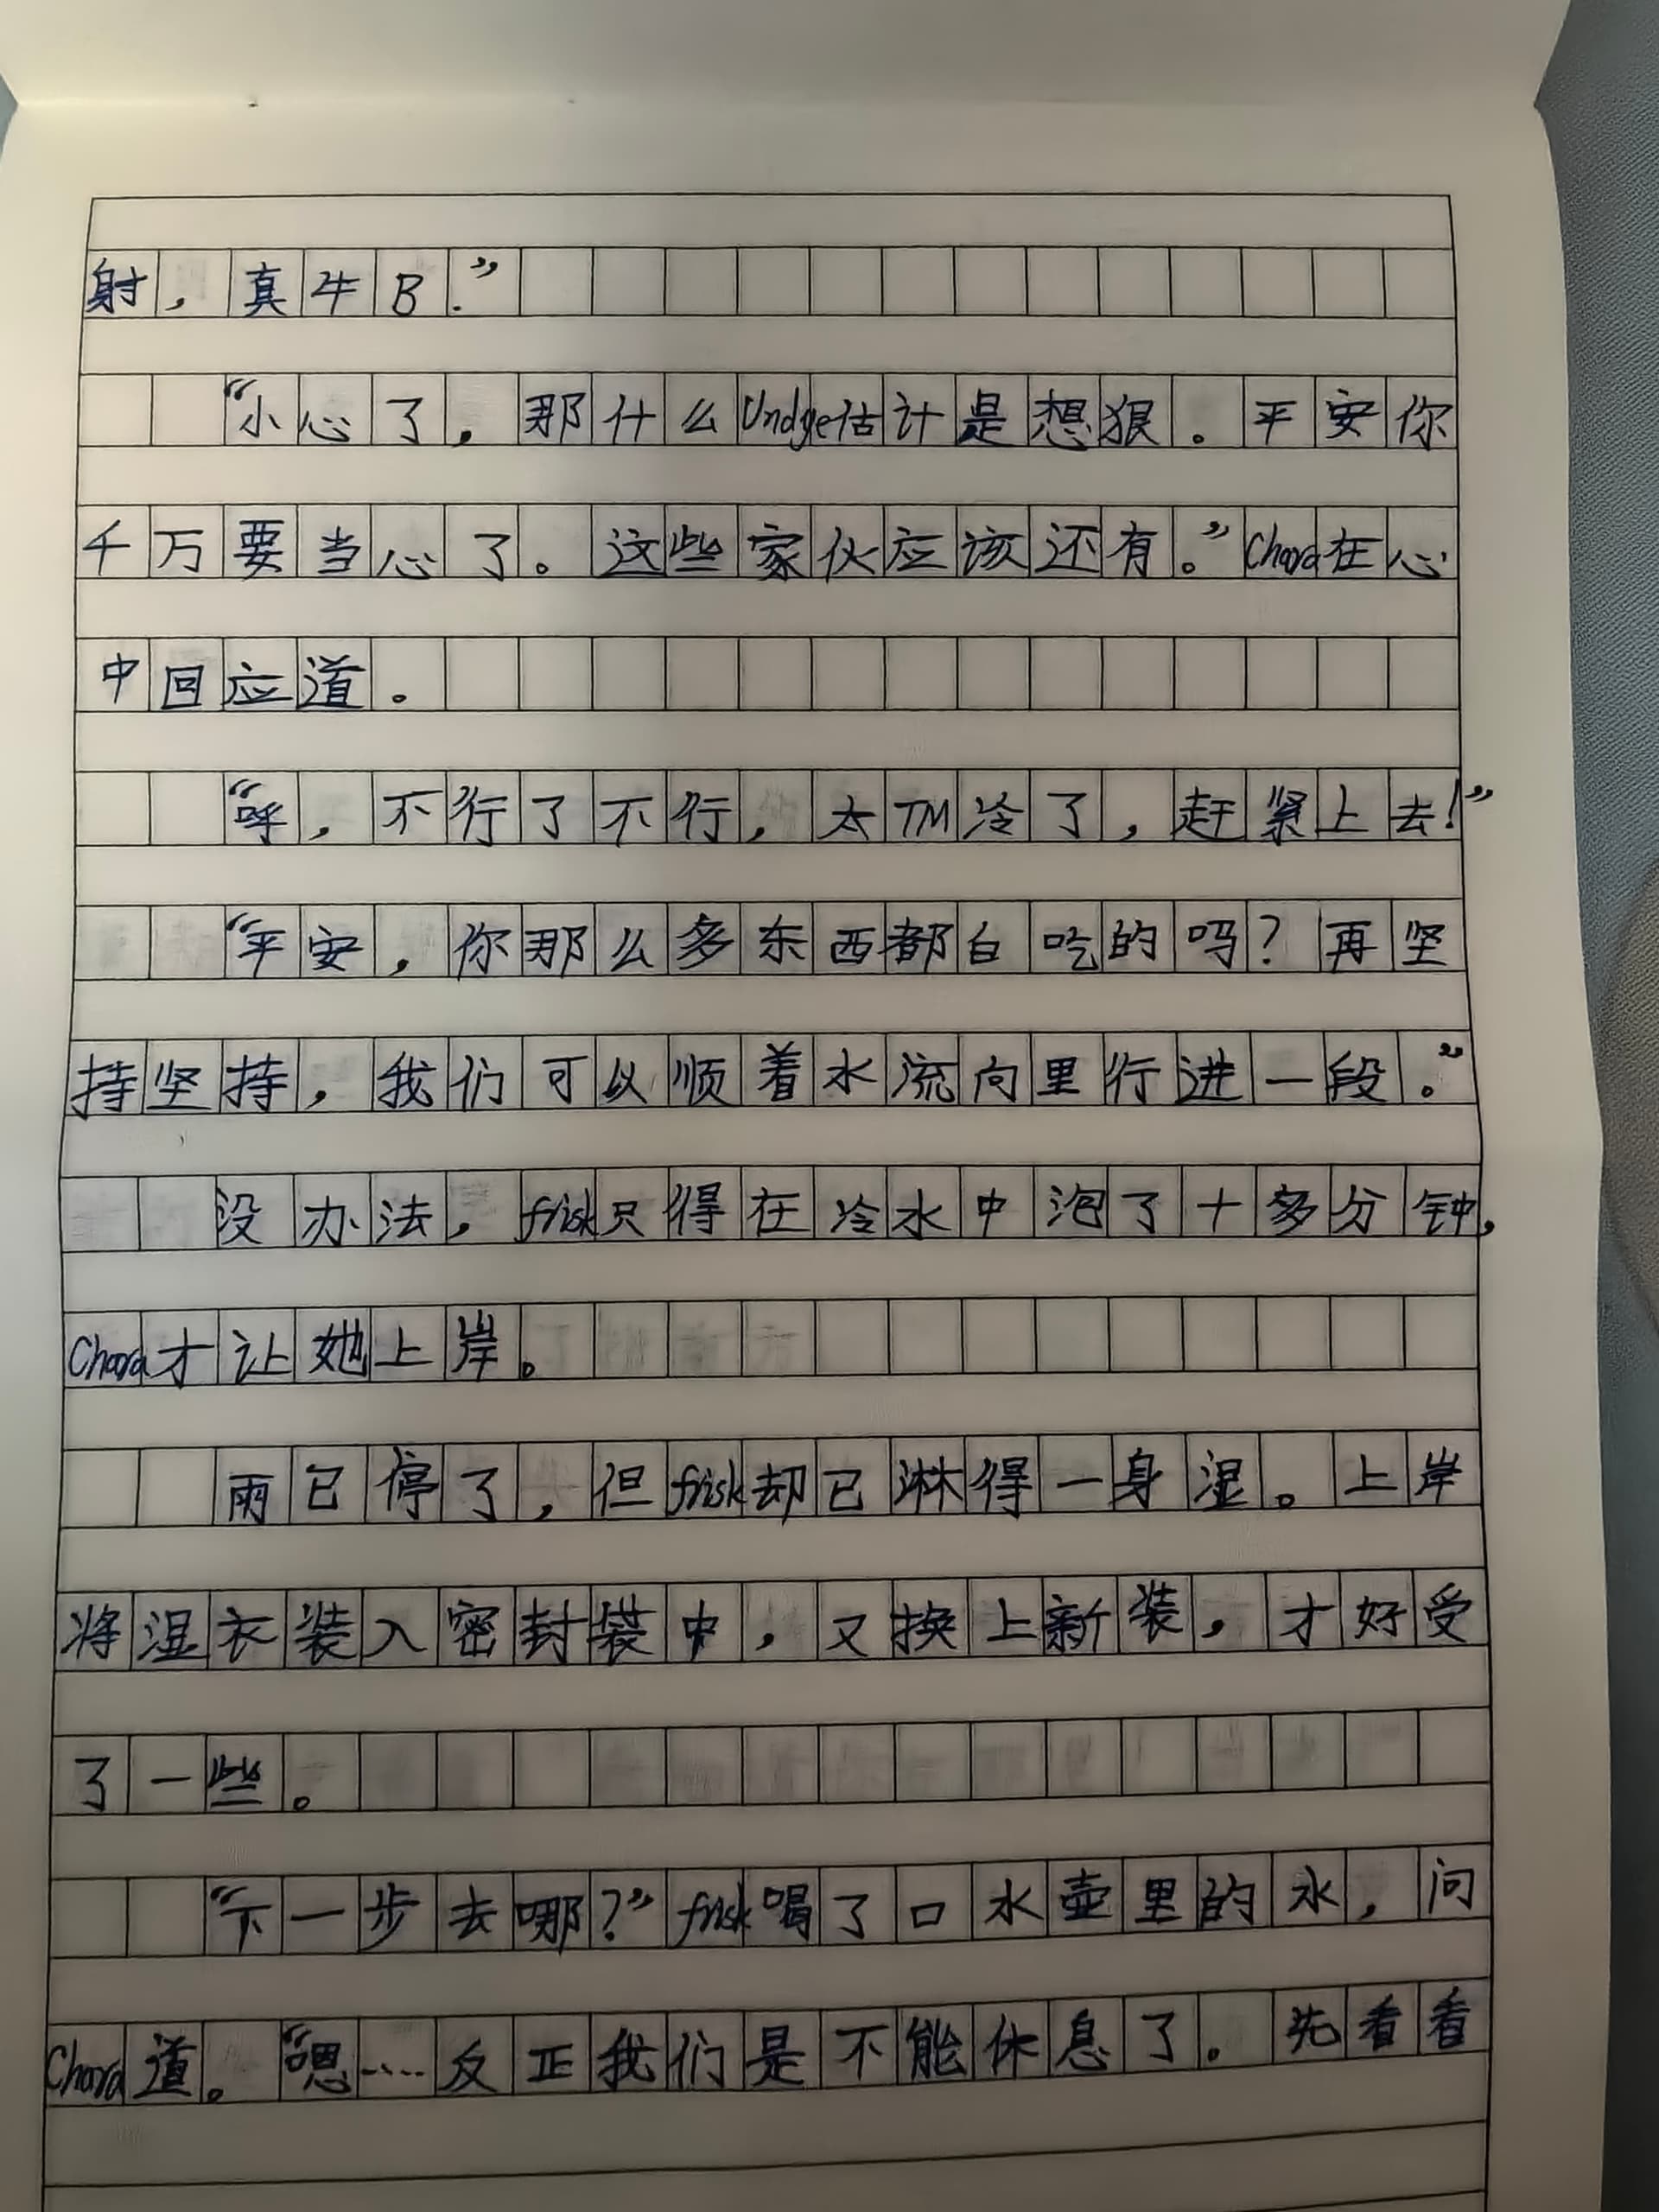 射，真牛B.”
“小心了，那什么Undye估计是想狠。平安你
千万要当心了。这些家伙应该还有。”Chara在心
中回应道。
“呼，不行了不行，太TM冷了，赶紧上去！”
“平安，你那么多东西都白吃的吗？再坚
持坚持，我们可以顺着水流向里行进一段。”
没办法，frisk只得在冷水中泡了十多分钟，
Chara才让她上岸。
雨已停了，但frisk却已淋得一身湿。上岸
将湿衣装入密封袋中，又换上新装，才好受
了一些。
“下一步去哪？”frisk喝了口水壶里的水，问
Chara道。“嗯……反正我们是不能休息了。先看看